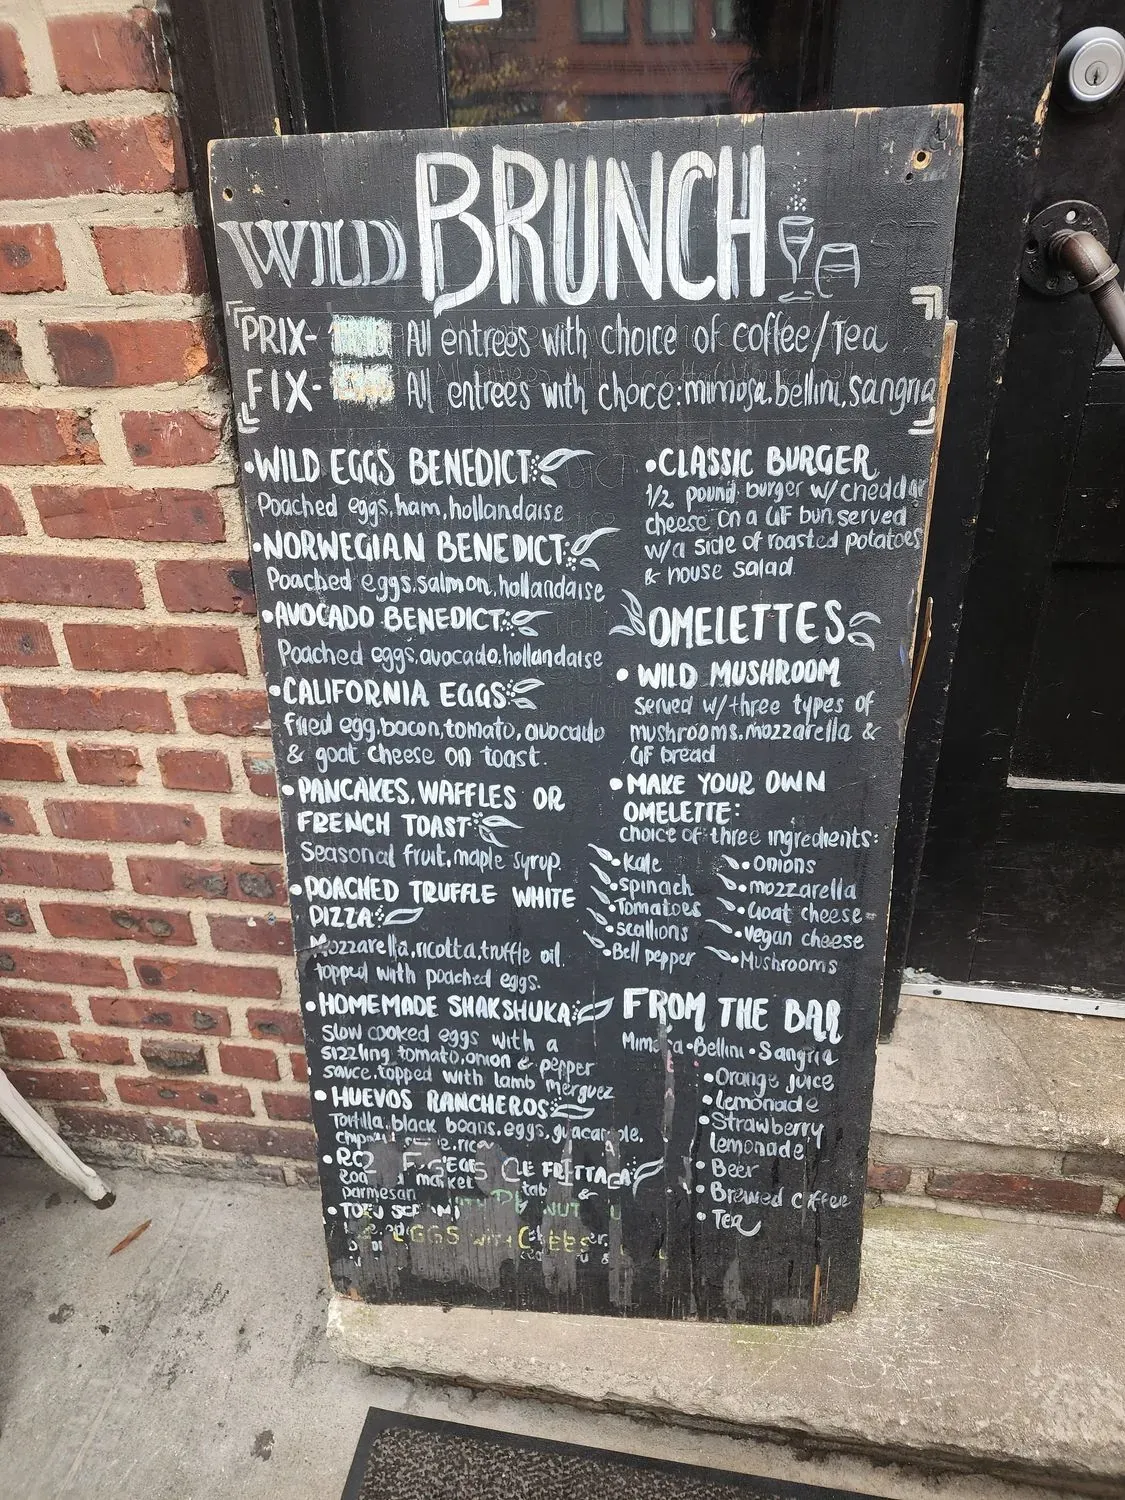 WILD BRUNCH
PRIX- All entrees with choice of coffee/Tea
FIX- All entrees with choce: mimosa, bellini, sangria
•WILD EGGS BENEDICT:
Poached eggs, ham, hollandaise
•NORWEGIAN BENEDICT:
Poached eggs, salmon, hollandaise
•AVOCADO BENEDICT:
Poached eggs, avocado, hollandaise
•CALIFORNIA EGGS:
fried egg, bacon, tomato, avocado
& goat cheese on toast.
•PANCAKES, WAFFLES OR
FRENCH TOAST:
Seasonal fruit, maple syrup.
•POACHED TRUFFLE WHITE
PIZZA:
Mozzarella, ricotta, truffle oil,
topped with poached eggs.
•HOMEMADE SHAKSHUKA:
Slow cooked eggs with a
sizzling tomato, onion & pepper
sauce, topped with lamb merguez
•HUEVOS RANCHEROS:
Tortilla, black beans, eggs, guacamole,
FRITTATA
market &
parmesan
EGGS
•CLASSIC BURGER
1/2 pound burger w/ cheddar
cheese on a GF bun served
w/a side of roasted potatoes
& house salad.
OMELETTES
• WILD MUSHROOM
served w/three types of
mushrooms, mozzarella &
GF bread
•MAKE YOUR OWN
OMELETTE:
choice of three ingredients:
•kale
•spinach
•Tomatoes
•scallions
•Bell pepper
•onions
•mozzarella
•Goat cheese
•vegan cheese
•Mushrooms
FROM THE BAR
Mimosa •Bellini •Sangria
•Orange juice
•Lemonade
•Strawberry
lemonade
•Beer
•Brewed Coffee
•Tea